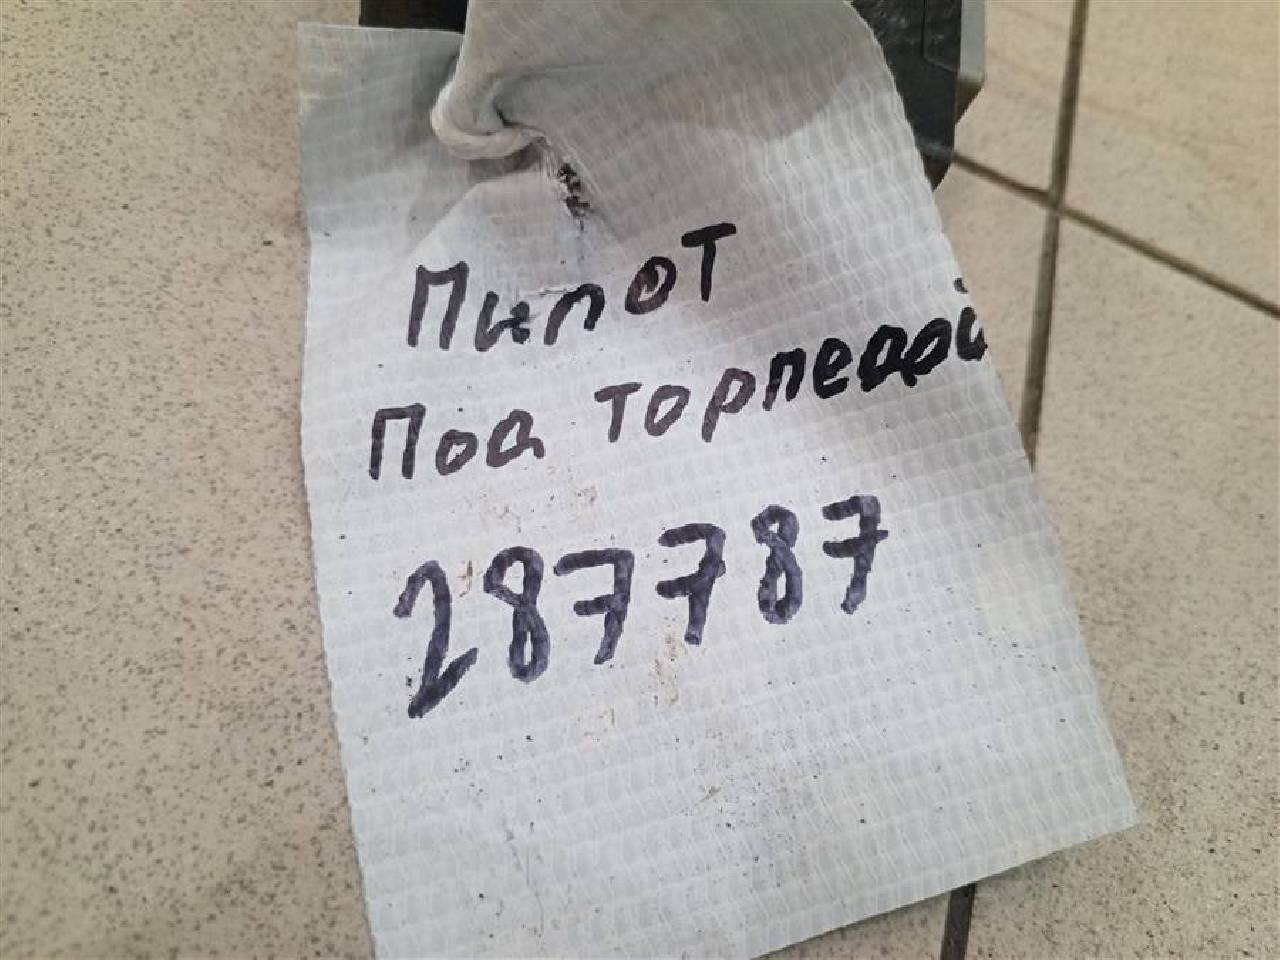 Пилот
Под торпедой
287787